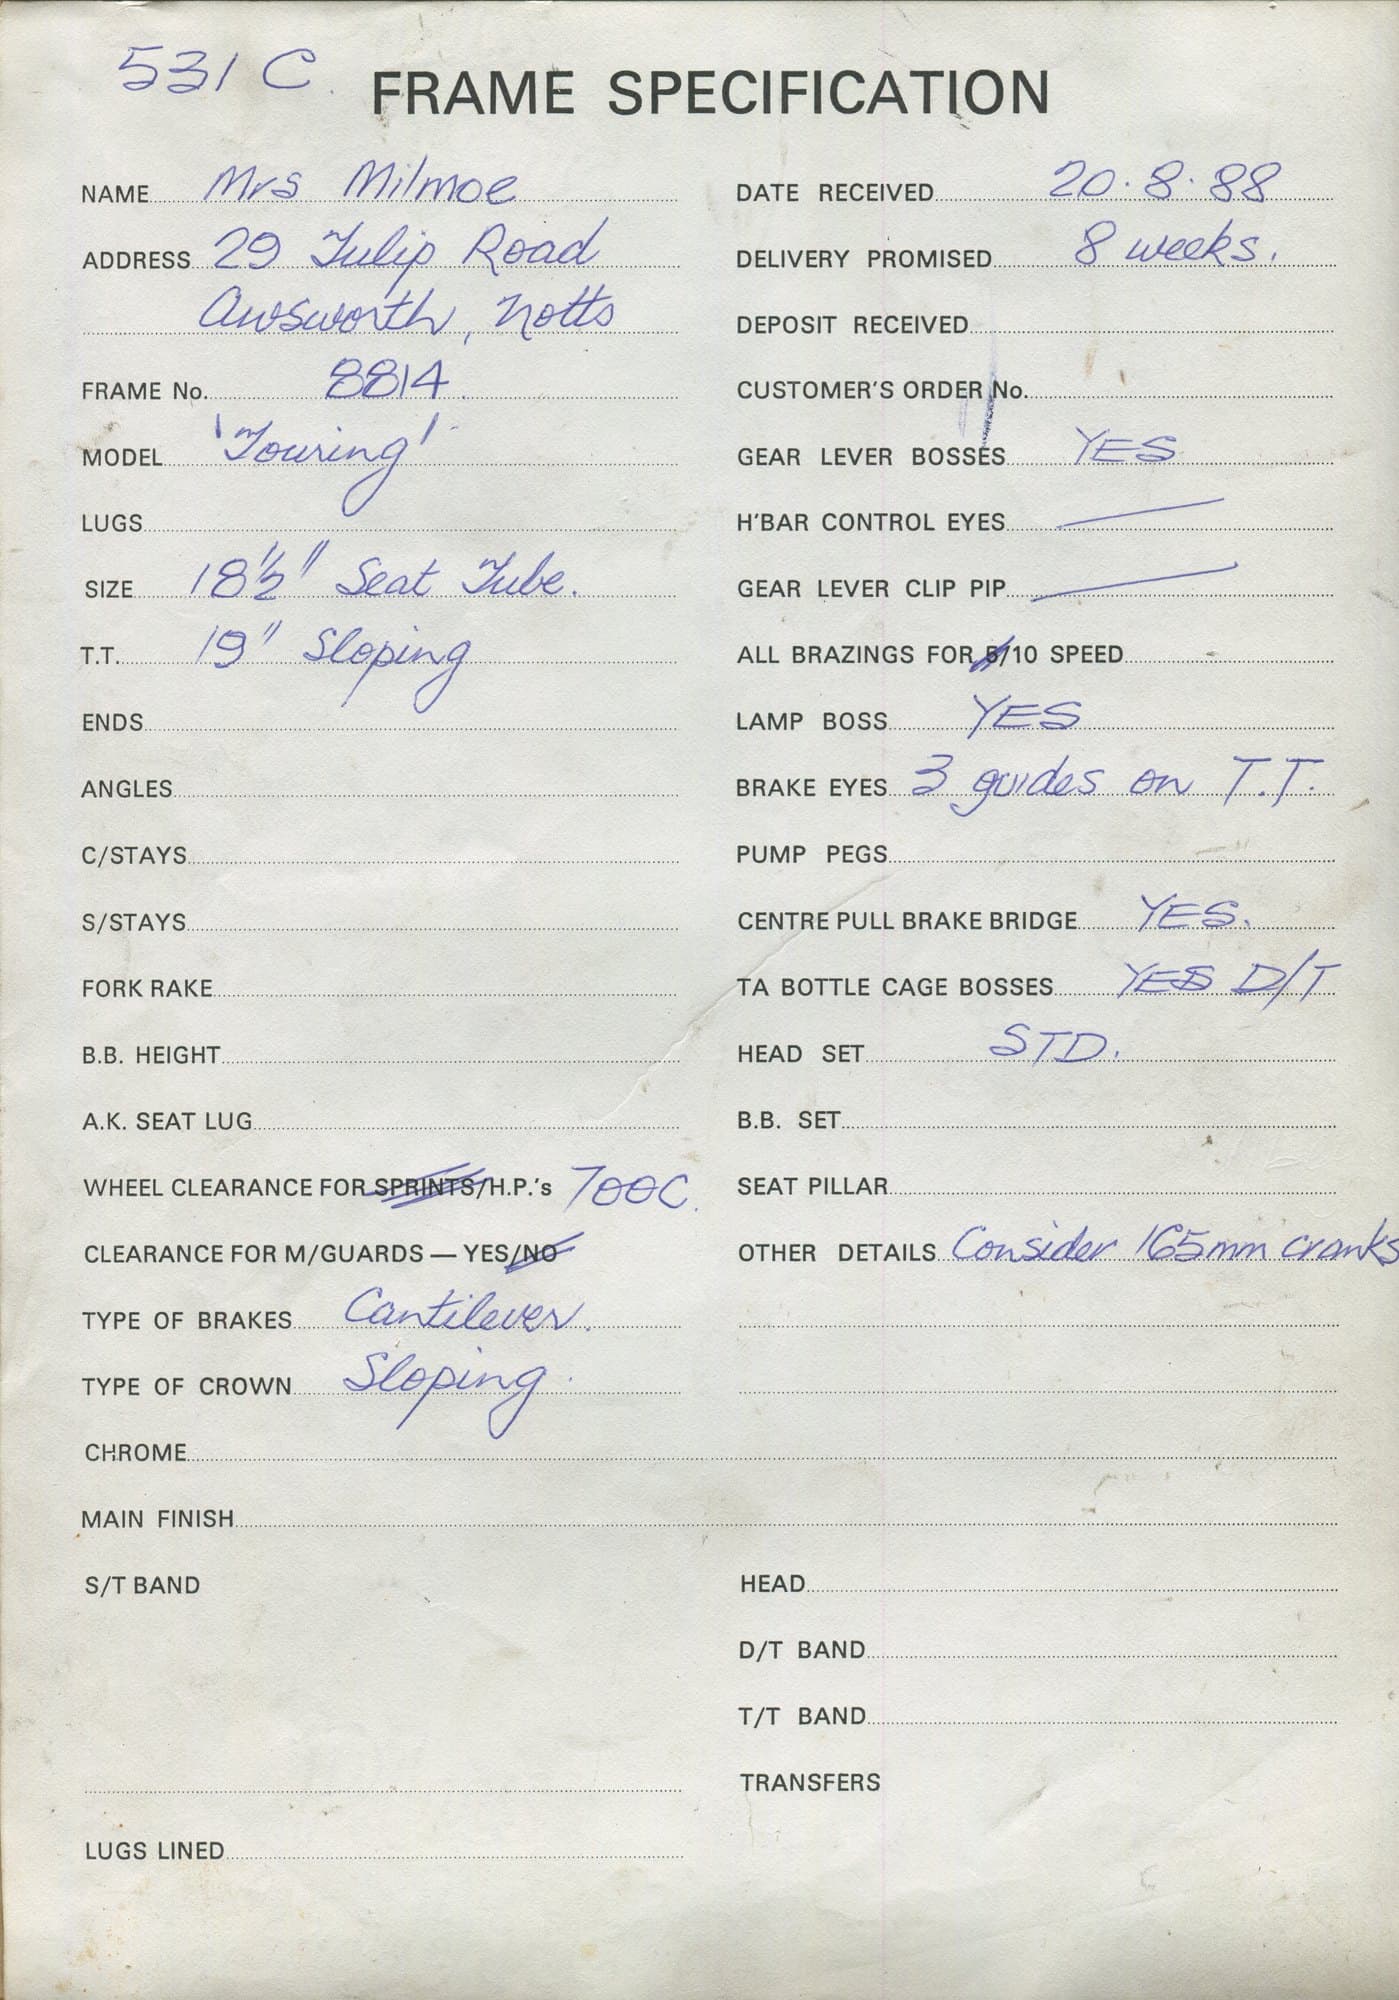 531 C.
FRAME SPECIFICATION
NAME Mrs Milmoe
ADDRESS 29 Tulip Road
Awsworth, Notts
FRAME No. 8814
MODEL 'Touring'
LUGS
SIZE 18½" Seat Tube.
T.T. 19" Sloping
ENDS
ANGLES
C/STAYS
S/STAYS
FORK RAKE
B.B. HEIGHT
A.K. SEAT LUG
WHEEL CLEARANCE FOR SPRINTS/H.P.'s 700C.
CLEARANCE FOR M/GUARDS — YES/NO
TYPE OF BRAKES Cantilever.
TYPE OF CROWN Sloping.
DATE RECEIVED 20.8.88
DELIVERY PROMISED 8 weeks.
DEPOSIT RECEIVED
CUSTOMER'S ORDER No.
GEAR LEVER BOSSES YES
H'BAR CONTROL EYES —
GEAR LEVER CLIP PIP —
ALL BRAZINGS FOR 5/10 SPEED
LAMP BOSS YES
BRAKE EYES 3 guides on T.T.
PUMP PEGS
CENTRE PULL BRAKE BRIDGE YES.
TA BOTTLE CAGE BOSSES YES D/T
HEAD SET STD.
B.B. SET
SEAT PILLAR
OTHER DETAILS Consider 165mm cranks
CHROME
MAIN FINISH
S/T BAND
LUGS LINED
HEAD
D/T BAND
T/T BAND
TRANSFERS